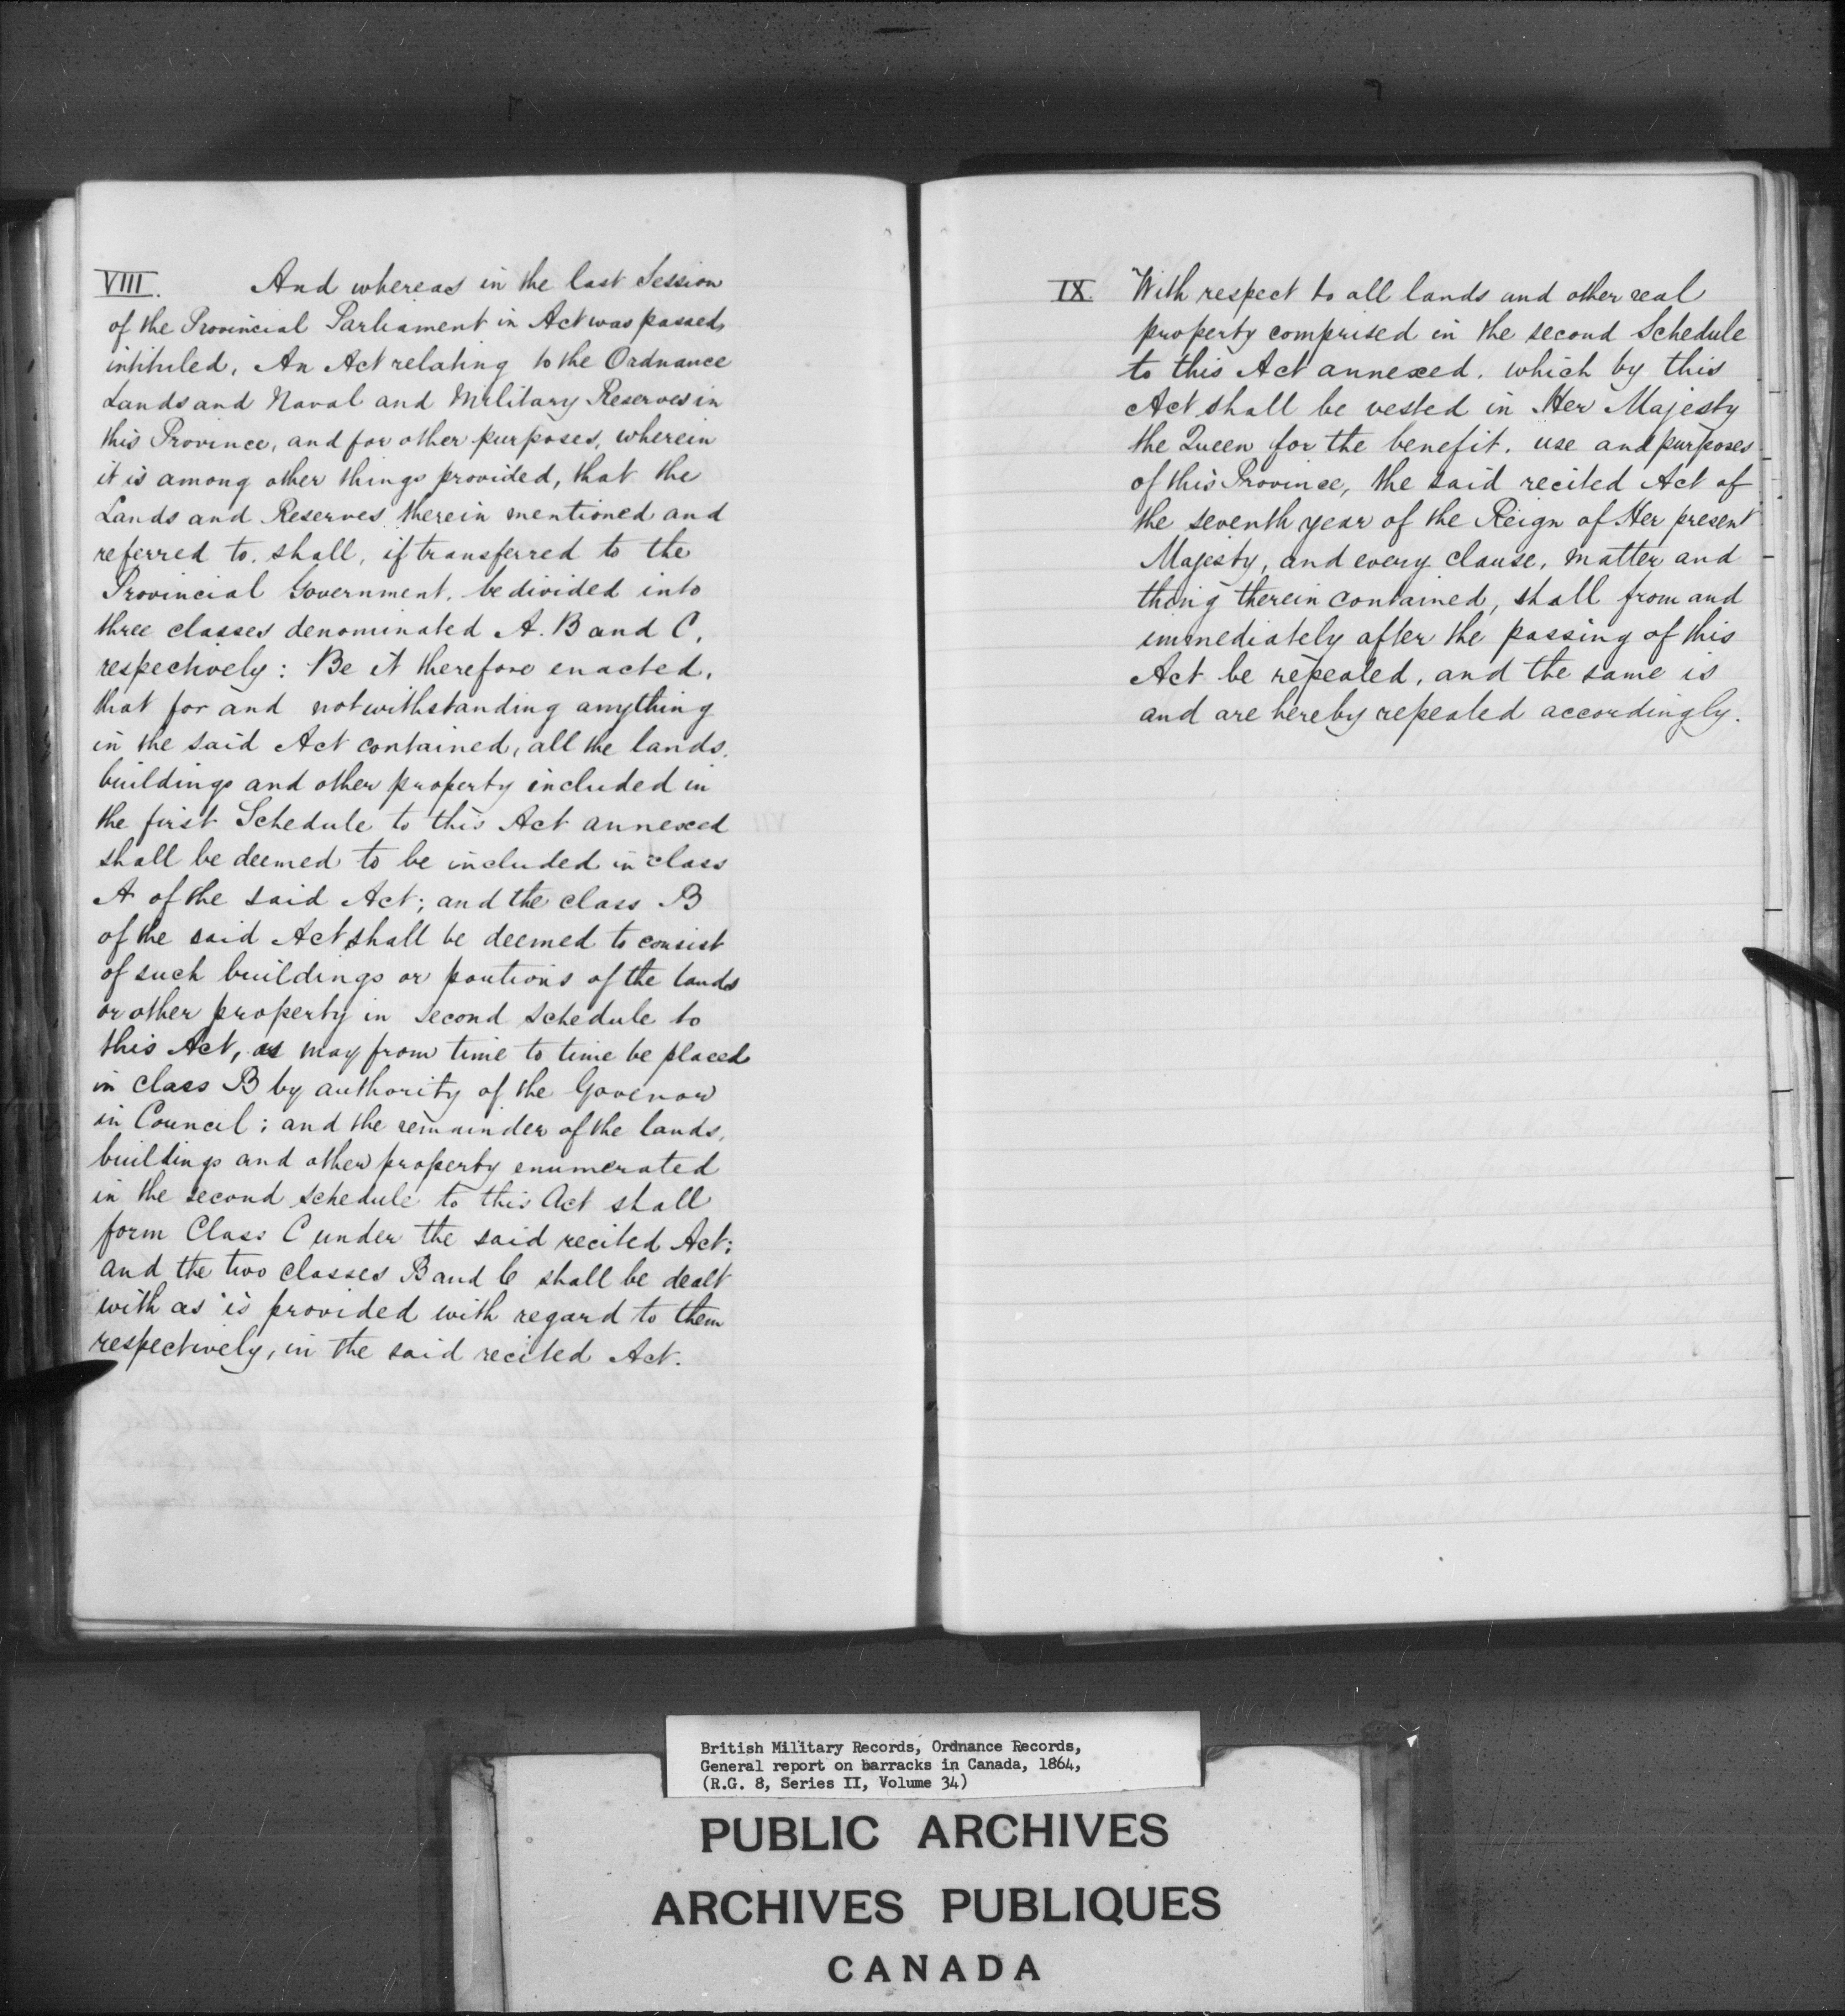 VIII. And whereas in the last Session
of the Provincial Parliament in Act was passed,
intituled, An Act relating to the Ordnance
Lands and Naval and Military Reserves in
this Province, and for other purposes, wherein
it is among other things provided, that the
Lands and Reserves therein mentioned and
referred to. shall, if transferred to the
Provincial Government, be divided into
three classes denominated A. B and C,
respectively: Be it therefore enacted,
that for and notwithstanding anything
in the said Act contained, all the lands,
buildings and other property included in
the first Schedule to this Act annexed
shall be deemed to be included in class
A of the said Act; and the class B
of the said Act shall be deemed to consist
of such buildings or poutions of the lands
or other property in second schedule to
this Act, as may from time to time be placed
in class B by authority of the Govenor
in Council; and the remainder of the lands,
buildings and other property enumerated
in the second schedule to this Act shall
form Class C under the said recited Act;
and the two classes B and C shall be dealt
with as is provided with regard to them
respectively, in the said recited Act.
IX. With respect to all lands and other real
property comprised in the second Schedule
to this Act annexed. which by this
Act shall be vested in Her Majesty
the Queen for the benefit. use and purposes
of this Province, the said recited Act of
the seventh year of the Reign of Her present
Majesty, and every clause, matter and
thing therein contained, shall from and
immediately after the passing of this
Act be repealed, and the same is
and are hereby repealed accordingly.
British Military Records, Ordnance Records,
General report on barracks in Canada, 1864,
(R.G. 8, Series II, Volume 34)
PUBLIC ARCHIVES
ARCHIVES PUBLIQUES
CANADA